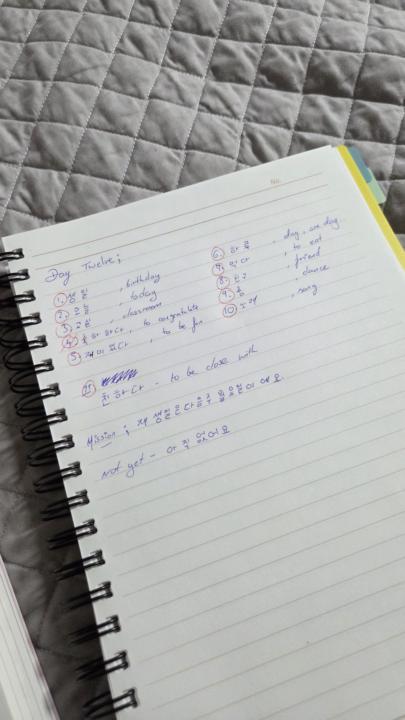 No.
Day Twelve;
1. 생일, birthday
2. 오늘, today
3. 교실, classroom
4. 축하하다, to congratulate
5. 재미있다, to be fun
6. 하루, day, one day
7. 먹다, to eat
8. 친구, friend
9. 춤, dance
10. 노래, song
11. 친하다 - to be close with
Mission; 제 생일은 다음주 월요일이에요.
Not yet - 아직